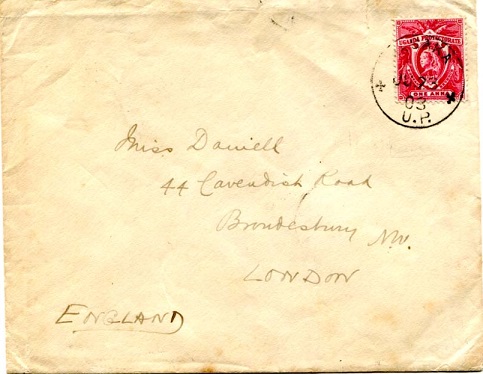 UGANDA PROTECTORATE
ONE ANNA
03
U.P.
Miss Daniell
44 Cavendish Road
Brondesbury N.W.
LONDON
ENGLAND